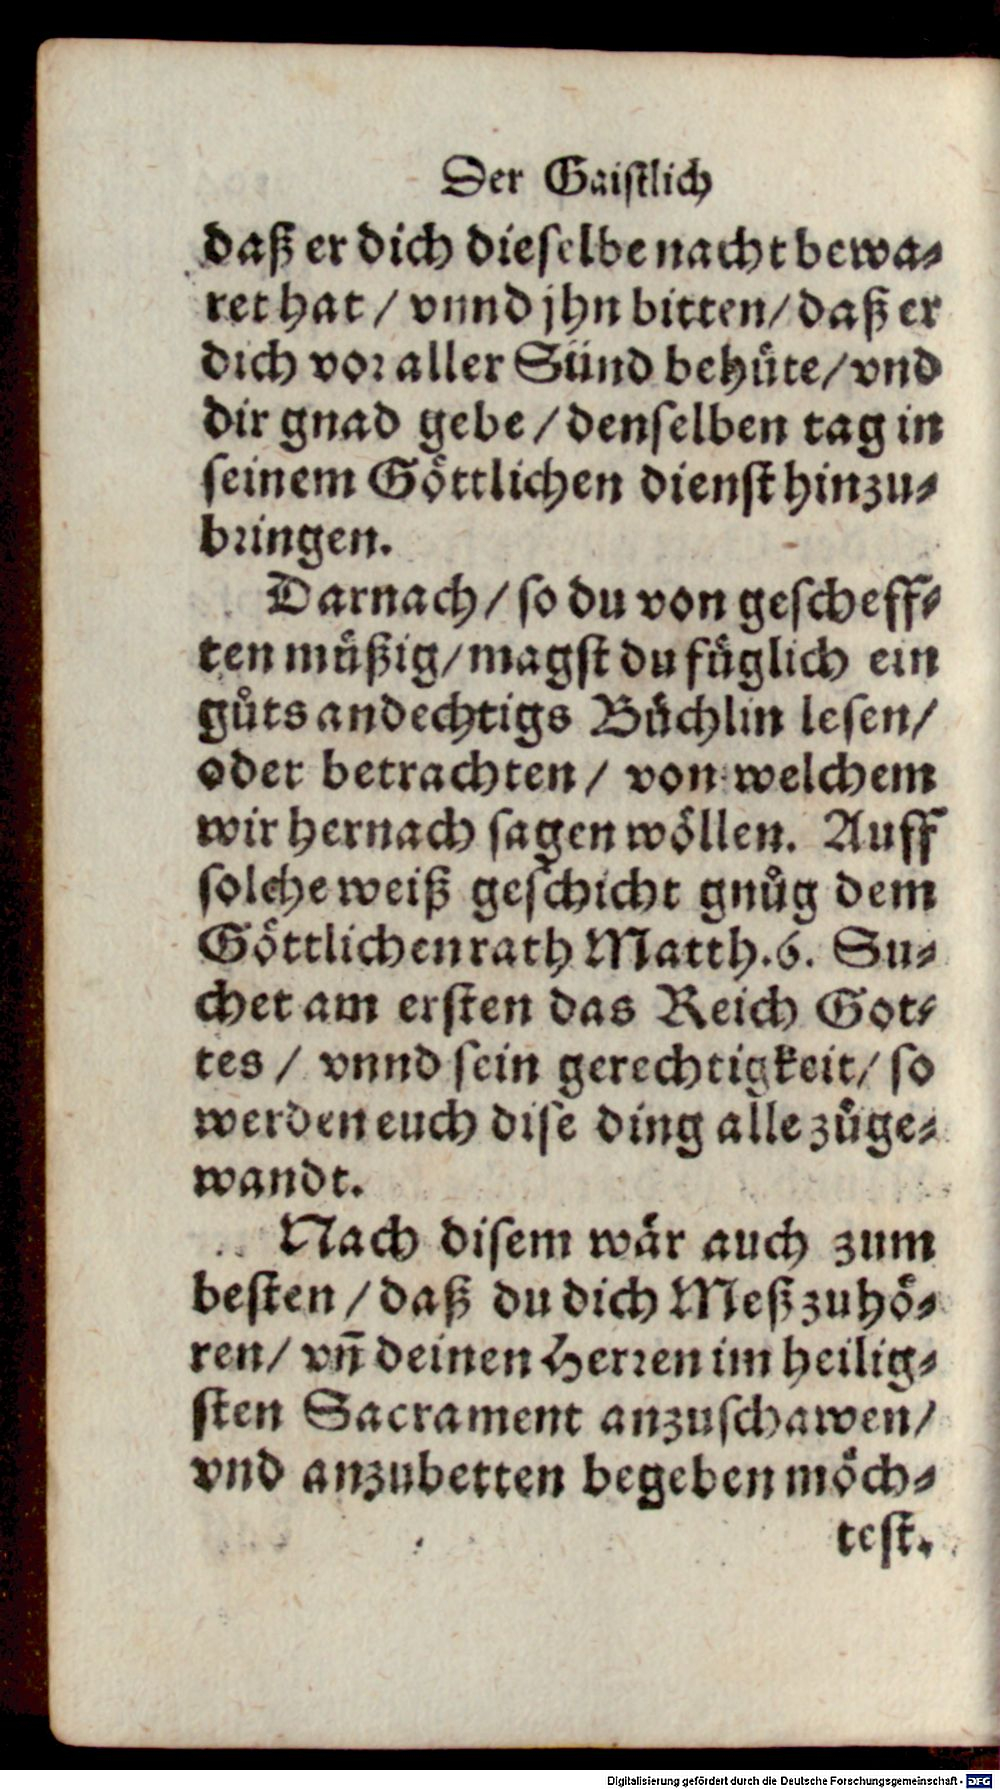 Der Gaistlich
daß er dich dieselbe nacht bewa⸗
ret hat / vnnd jhn bitten / daß er
dich vor aller Sünd behuͤte / vnd
dir gnad gebe / denselben tag in
seinem Goͤttlichen dienst hinzu⸗
bringen.
Darnach / so du von gescheff⸗
ten muͤßig / magst du fuͤglich ein
guͦts andechtigs Buͤchlin lesen /
oder betrachten / von welchem
wir hernach sagen woͤllen. Auff
solche weiß geschicht gnuͦg dem
Goͤttlichen rath Matth. 6. Su⸗
chet am ersten das Reich Got⸗
tes / vnnd sein gerechtigkeit / so
werden euch dise ding alle zuͦge⸗
wandt.
Nach disem waͤr auch zum
besten / daß du dich Meß zuhoͤ⸗
ren / vñ deinen Herren im heilig⸗
sten Sacrament anzuschawen /
vnd anzubetten begeben moͤch⸗
test.
Digitalisierung gefördert durch die Deutsche Forschungsgemeinschaft - DFG